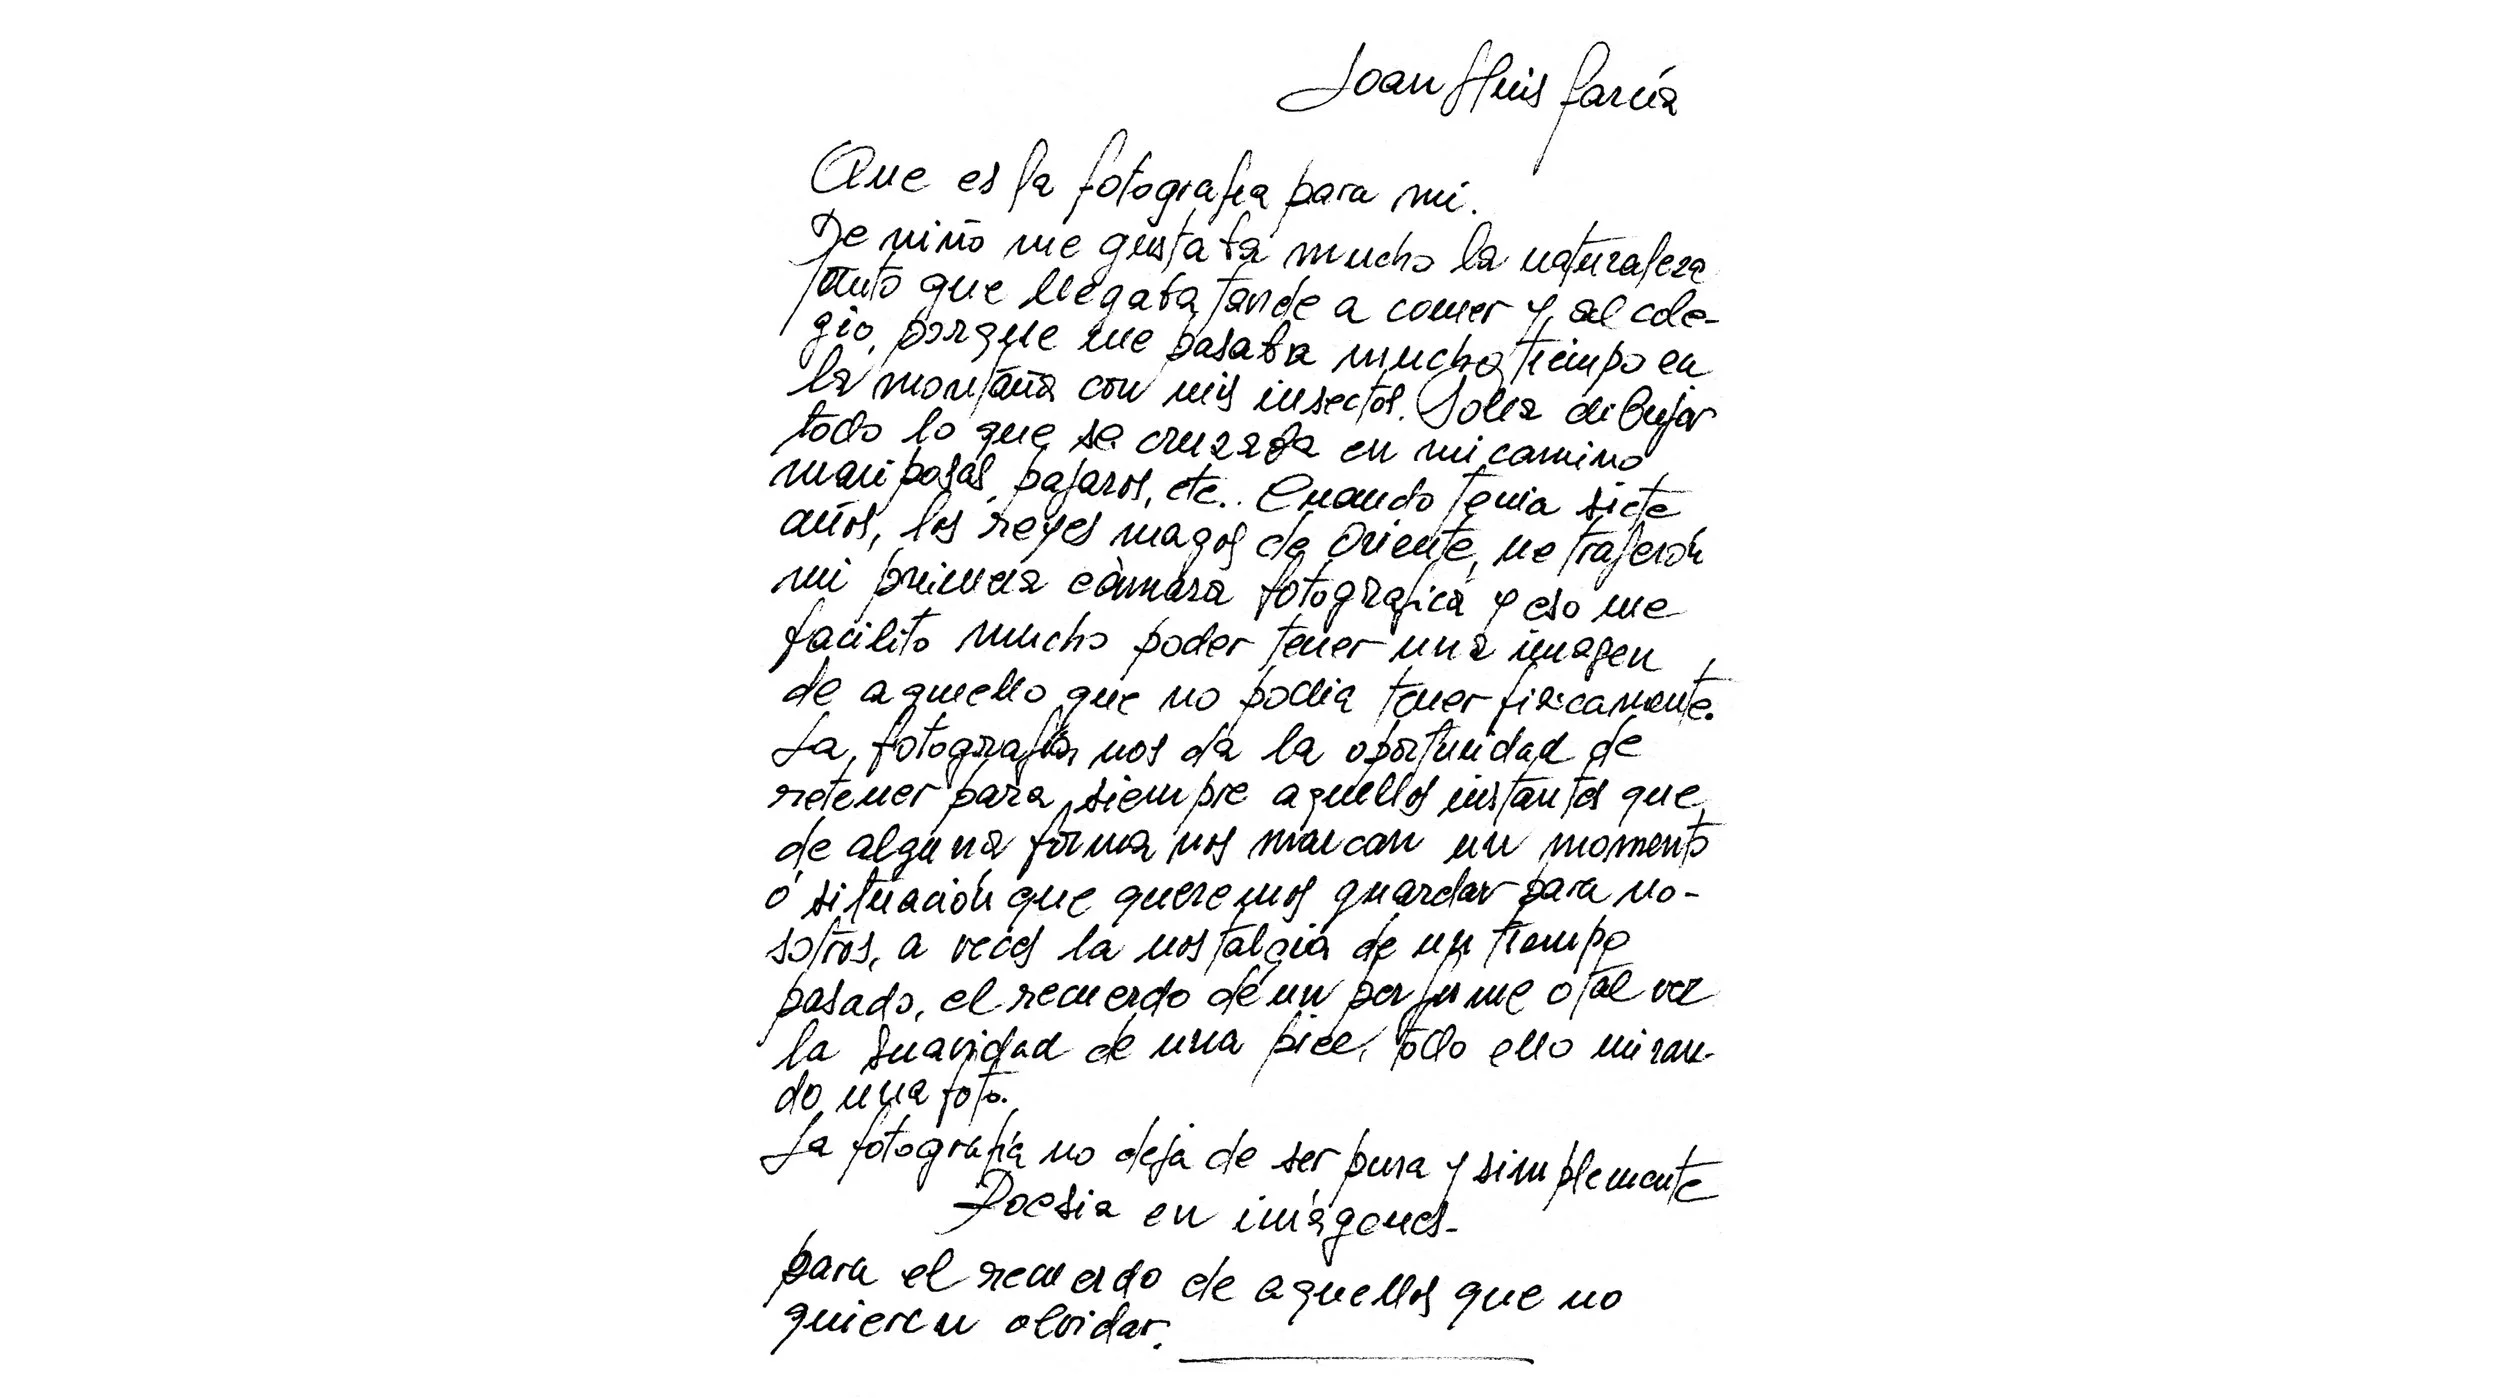 Joan Lluis García
Que es la fotografía para mi.
De niño me gustaba mucho la naturaleza
tanto que llegaba tarde a comer y al cole-
gio, porque me pasaba mucho tiempo en
la montaña con mis insectos. Solia dibujar
todo lo que se cruzaba en mi camino,
mariposas, pajaros, etc.. Cuando tenia siete
años, los reyes magos de Oriente, me trajerón
mi primera càmara fotografica y eso me
facilito mucho poder tener una imagen
de aquello que no podia tener fisicamente.
La fotografia nos da la oportunidad de
retener para siempre aquellos instantes que
de alguna forma nos marcan un momento
ó situación que queremos guardar para no-
sotros, a veces la nostalgia de un tiempo
pasado, el recuerdo de un perfume o tal vez
la suavidad de una piel, todo ello miran-
do una foto.
La fotografía no deja de ser pura y simplemente
Poesia en imágenes-
para el recuerdo de aquellos que no
quieren olvidar.